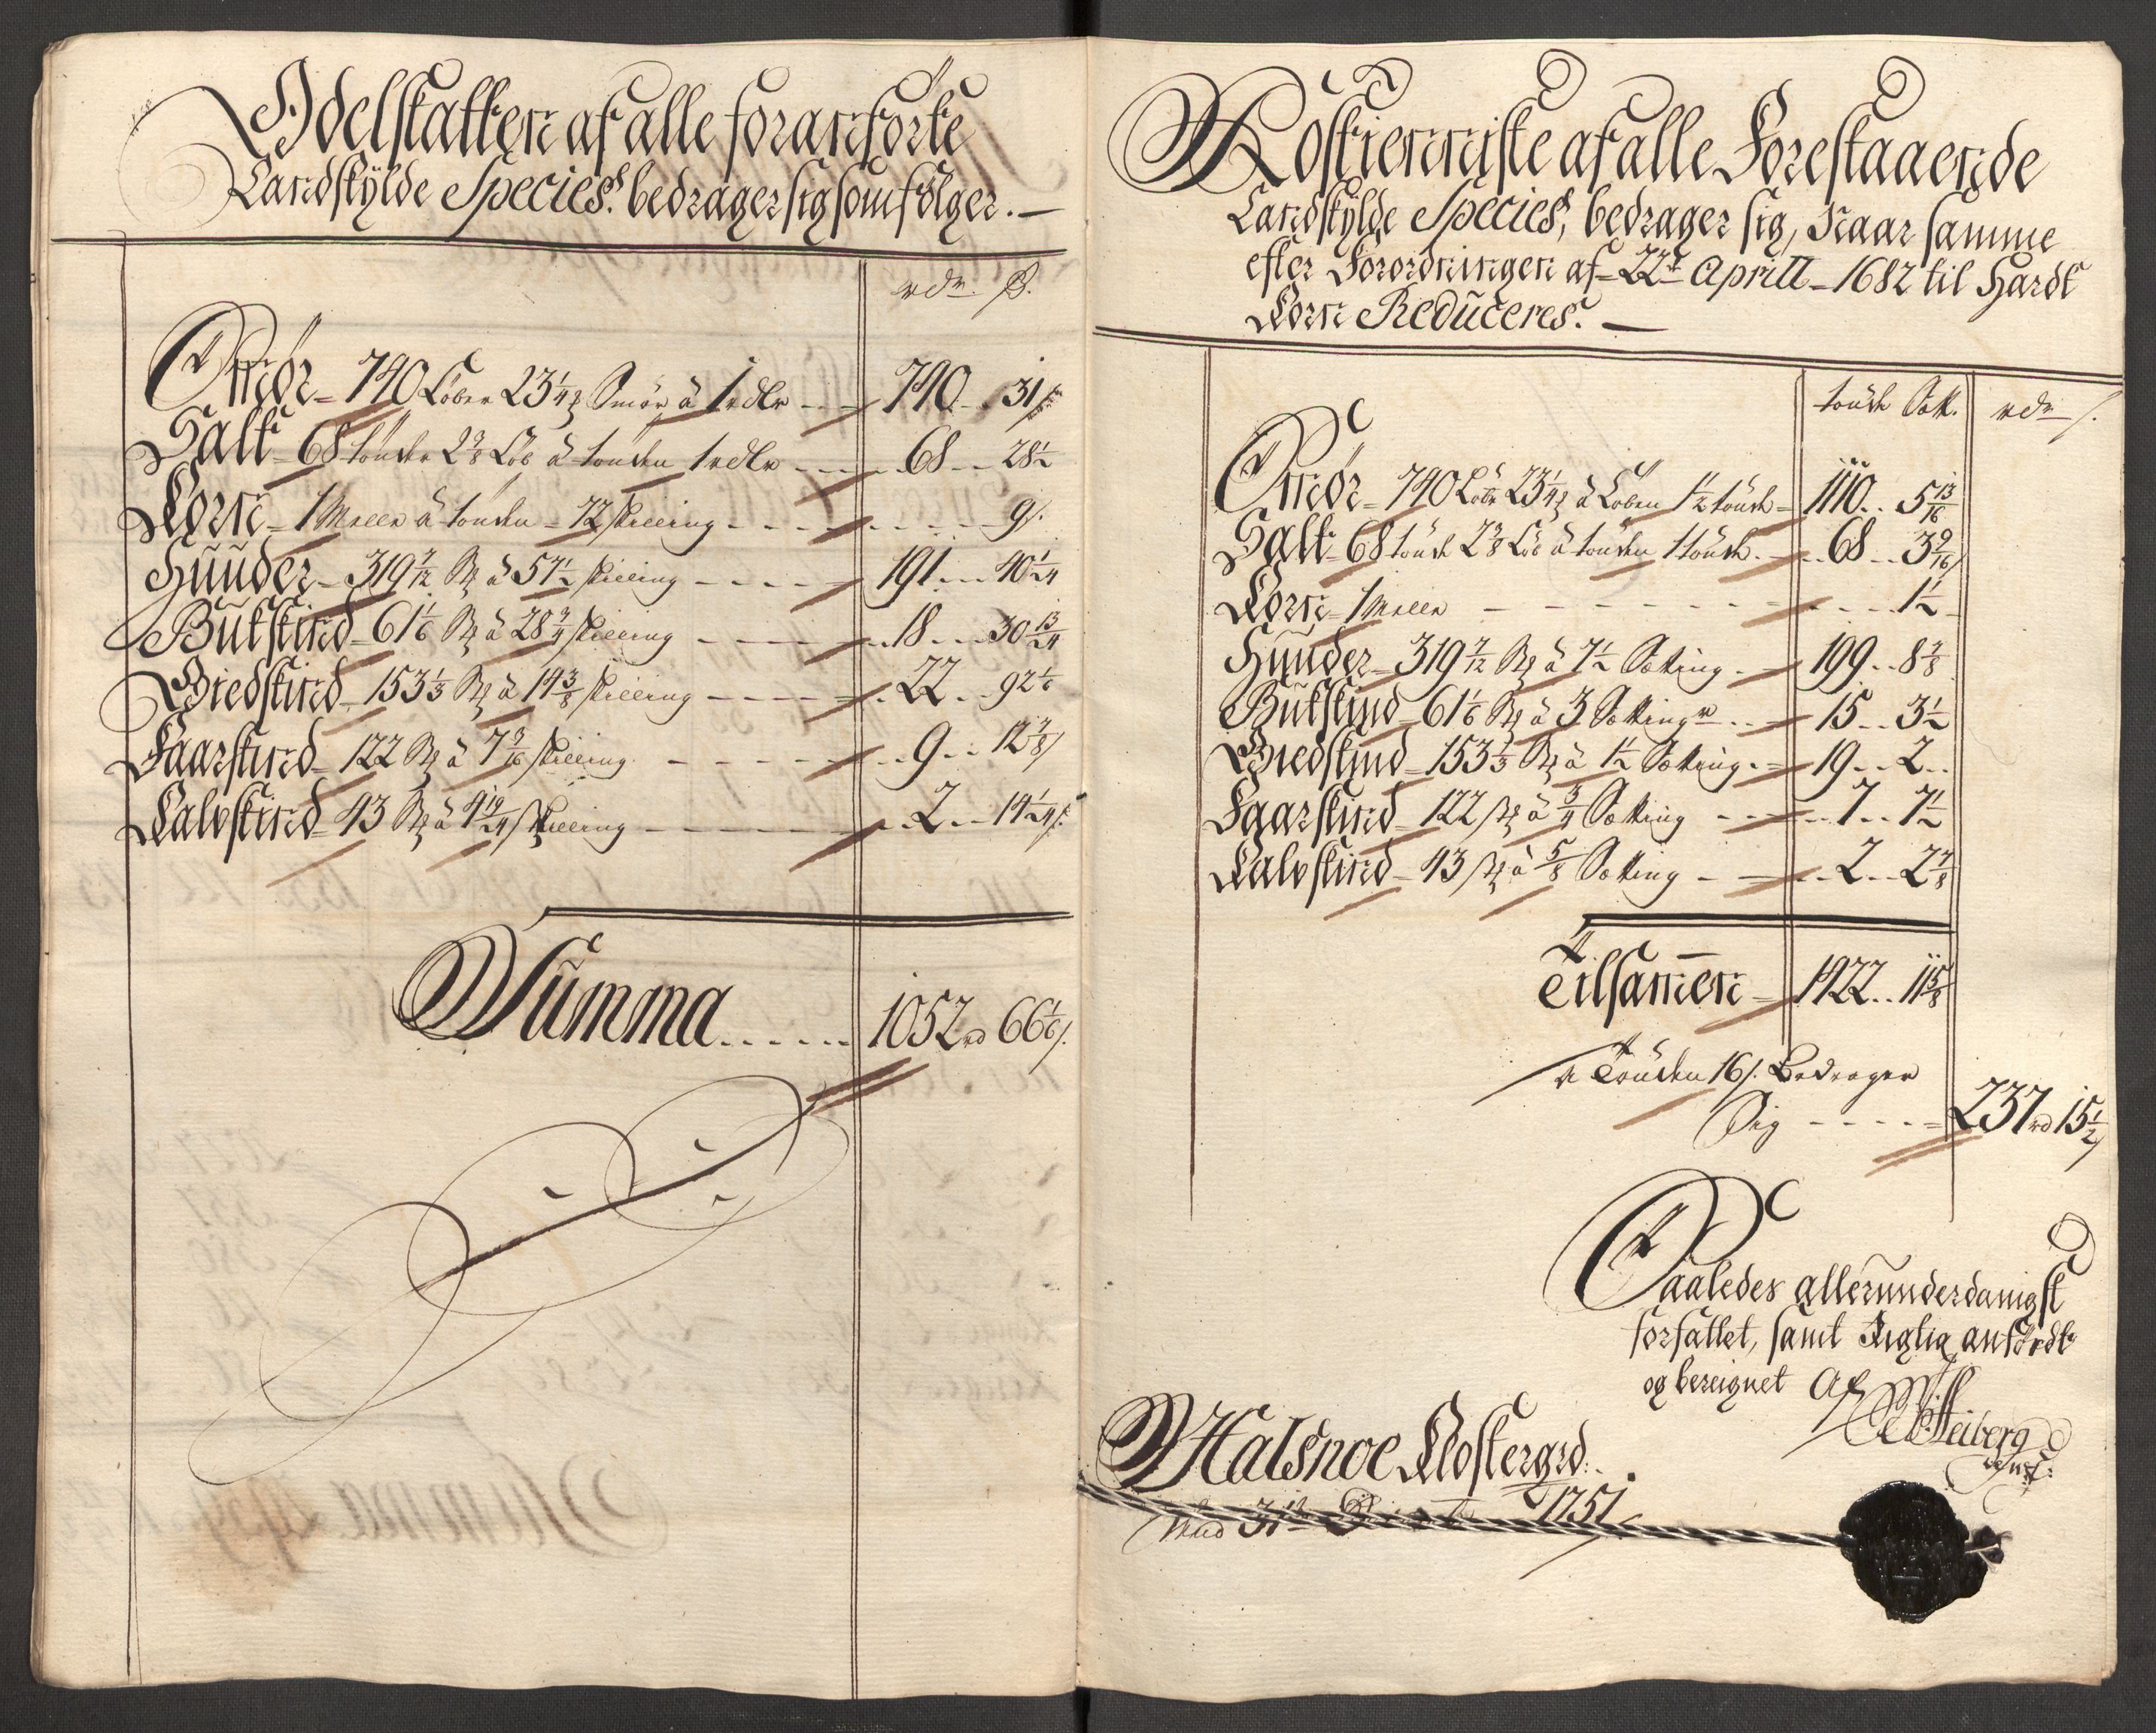 Odelskatten af alle foranförte
Landskÿlde Species bedrager sig som fölger. —
rdr. ß.
Smör - 740 Löber 23 1/4 ℔ Smör à 1 rdlr - - - 740 .. 31 ß
Salt - 68 tönder 2 3/8 Löb à tönden 1 rdlr - - - 68 .. 28 1/2
Korn - 1 Meele à tönden - 72 skilling - - - - - 9 ß.
Huuder - 319 7/12 St à 57 1/2 skilling - - - - 191 .. 40 1/24
Bukskind - 61 1/6 St à 28 3/4 skilling - - - 18 .. 30 13/24
Giedskind - 153 1/3 St à 14 3/8 skilling - - - 22 .. 92 1/6
Faarskind - 122 St à 7 3/16 skilling - - - - 9 .. 12 7/8 ß
Kalvskind - 43 St à 4 19/24 skilling - - - - 2 .. 14 1/24 ß.
Summa . . . . . . 1052 rd 66 1/6 ß.
Rostienniste af alle Forestaaende
Landskÿlde Species, bedrager sig, Naar samme
efter Forordningen af 22de Aprill - 1682 til Hardt
Korn Reduceres. —
tönde Sett. rdr ß.
Smör - 740 Löbr 23 1/4 ℔ à Löben 1 1/2 tönde - 1110 .. 5 13/16
Salt - 68 tönde 2 3/8 Löb à tönden 1 tönde - 68 .. 3 9/16
Korn - 1 Meele - - - - - - - 1 1/2
Huuder - 319 7/12 St à 7 1/2 Setting - 199 .. 8 7/8
Bukskind - 61 1/6 St à 3 Settingr - 15 .. 3 1/2
Giedskind - 153 1/3 St à 1 1/2 Setting - 19 .. 2 ..
Faarskind - 122 St à 3/4 Setting - - - 7 .. 7 1/2
Kalvskind - 43 St à 5/8 Setting - - - 2 .. 2 7/8
Tilsamen - 1422 .. 11 5/8
à Tönden 16 ß. Bedrager
Sig - - - - - 237 rd 15 1/2 ß
Saaledes allerunderdanigst
forfattet, samt Rigtig anfördt
og bereignet Af
Heiberg
Halsnoe Klostergrd.
1751